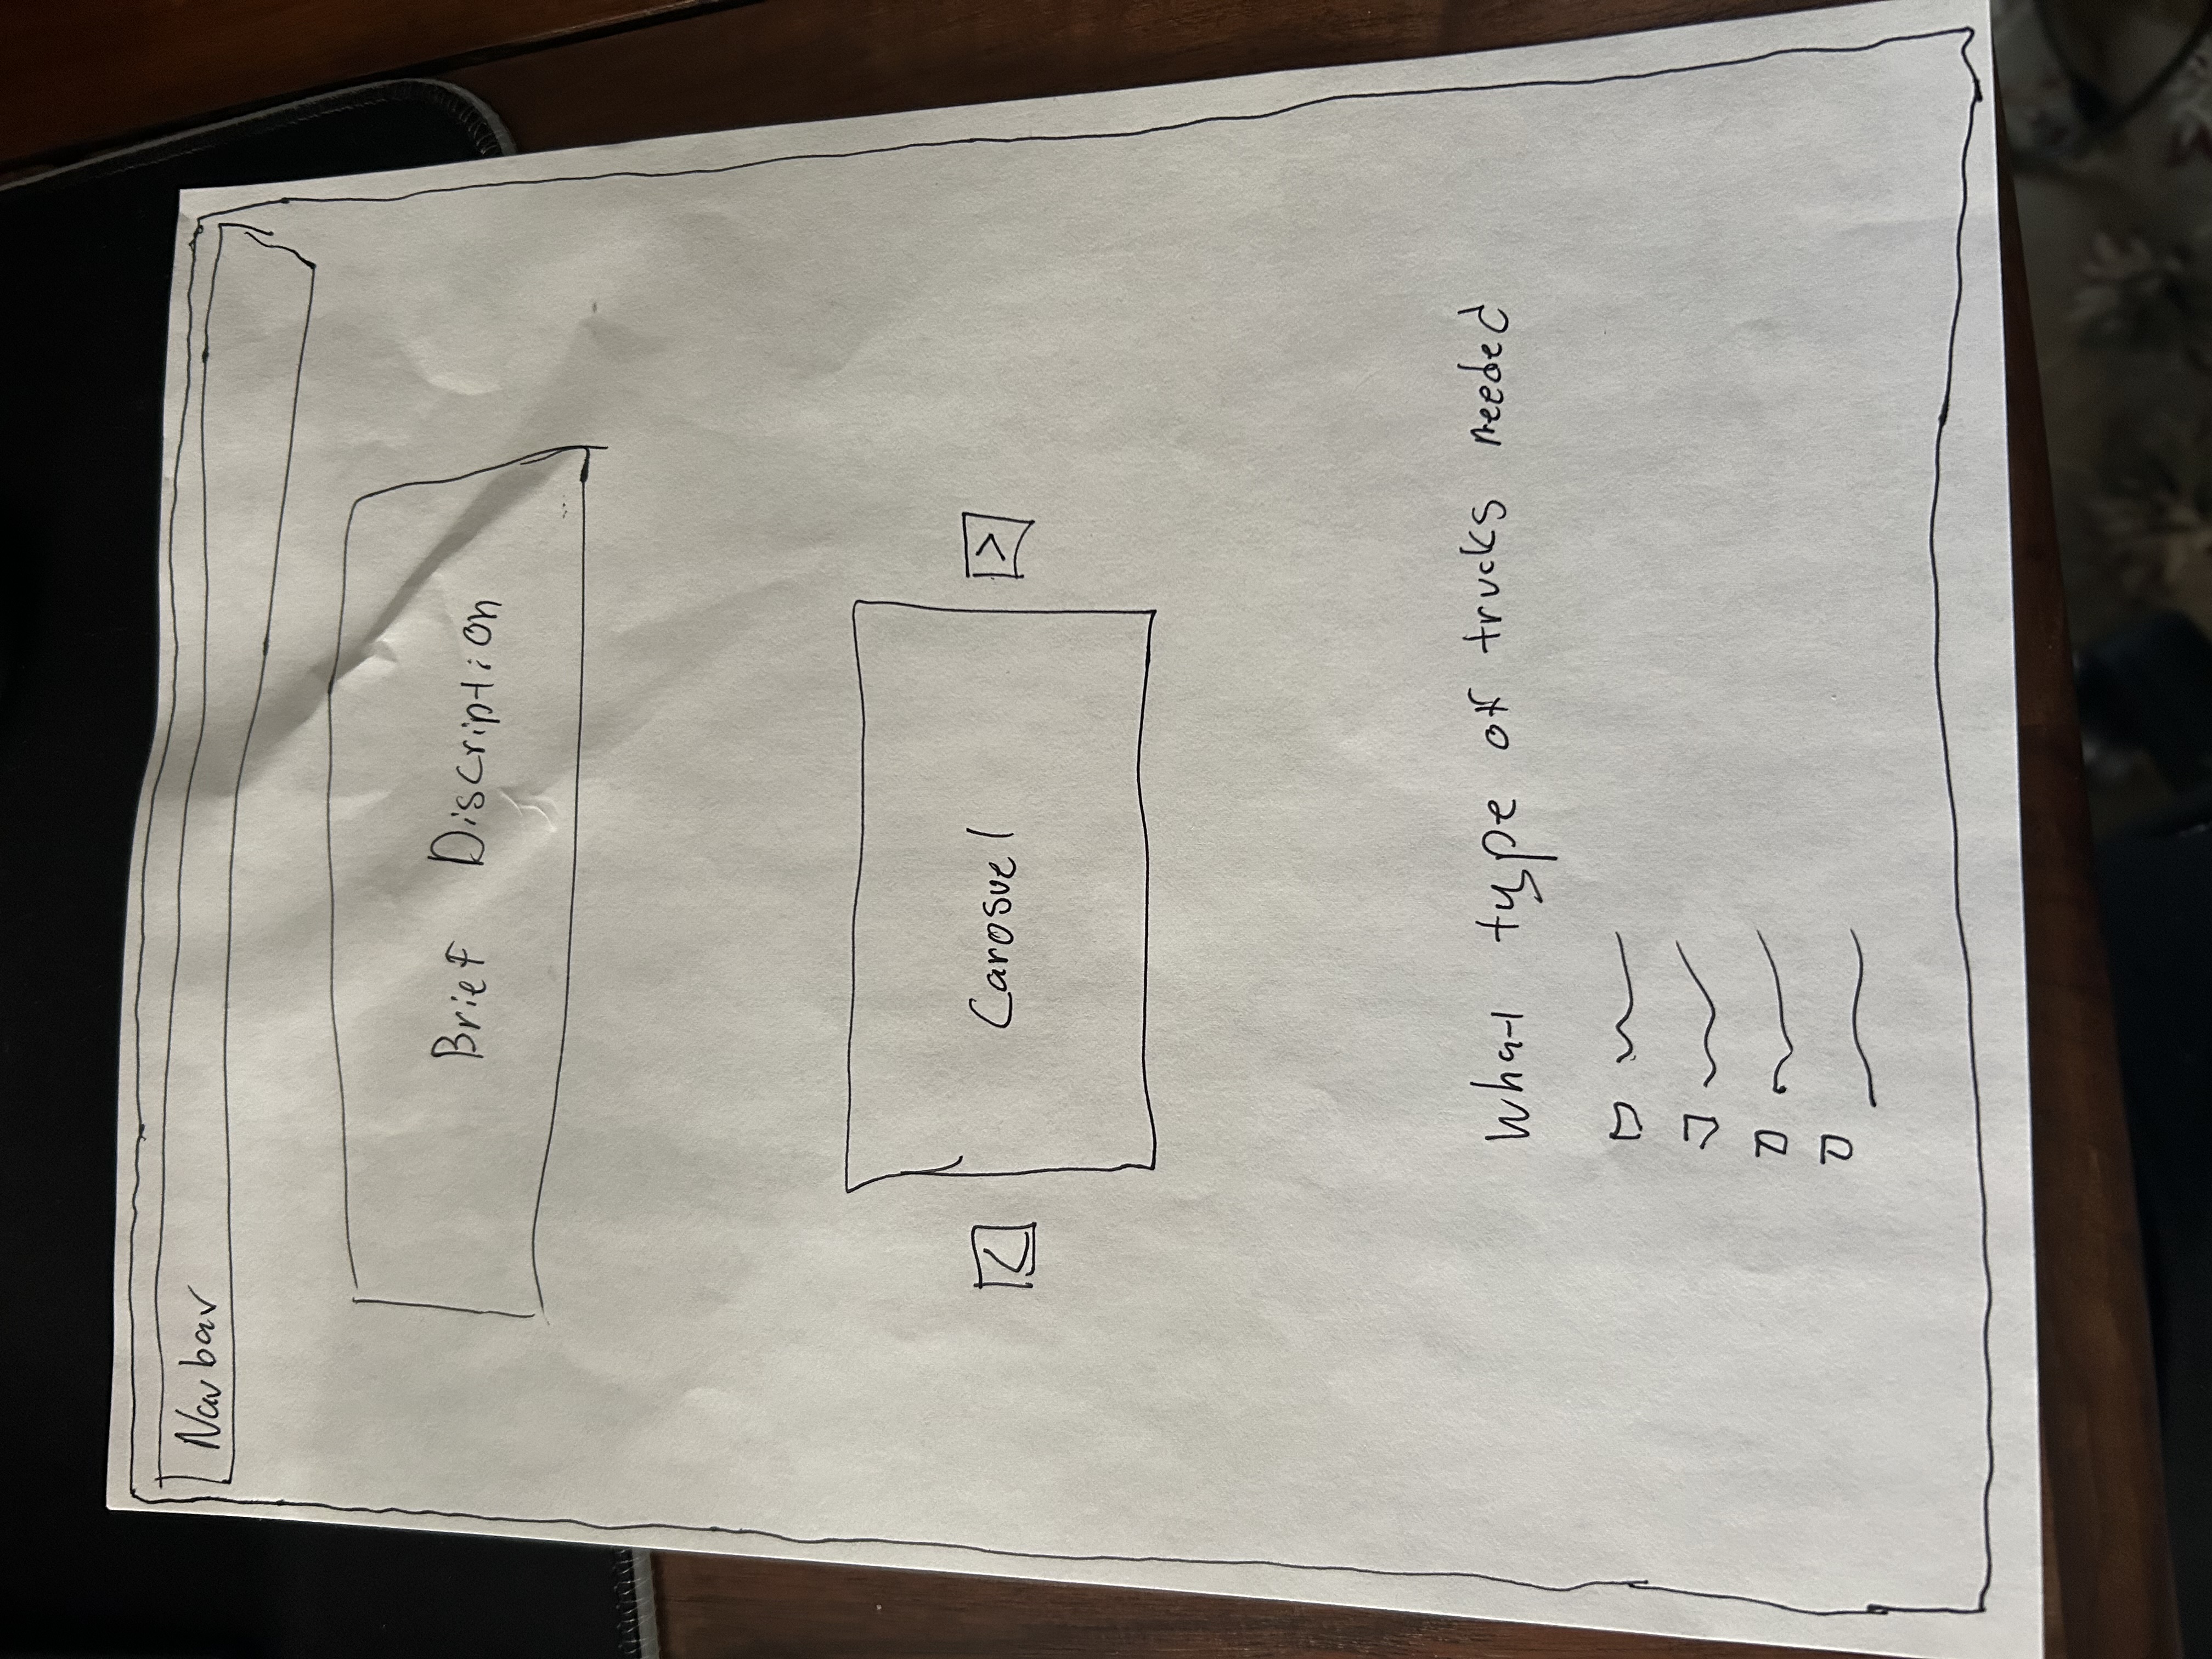 Navbar
Brief Discription
<
Carosuel
>
What type of trucks needed